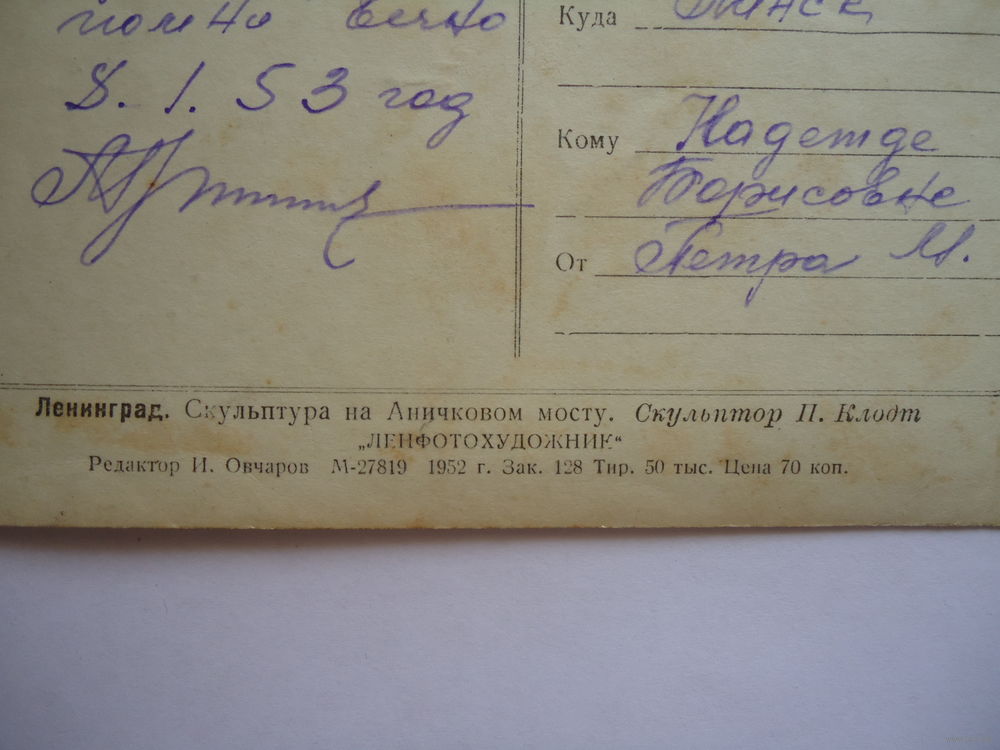 помню вечно
8. 1. 53 год
Куда
Кому Надежде
Борисовне
От Петра М.
Ленинград. Скульптура на Аничковом мосту. Скульптор П. Клодт
„ЛЕНФОТОХУДОЖНИК“
Редактор И. Овчаров М-27819 1952 г. Зак. 128 Тир. 50 тыс. Цена 70 коп.